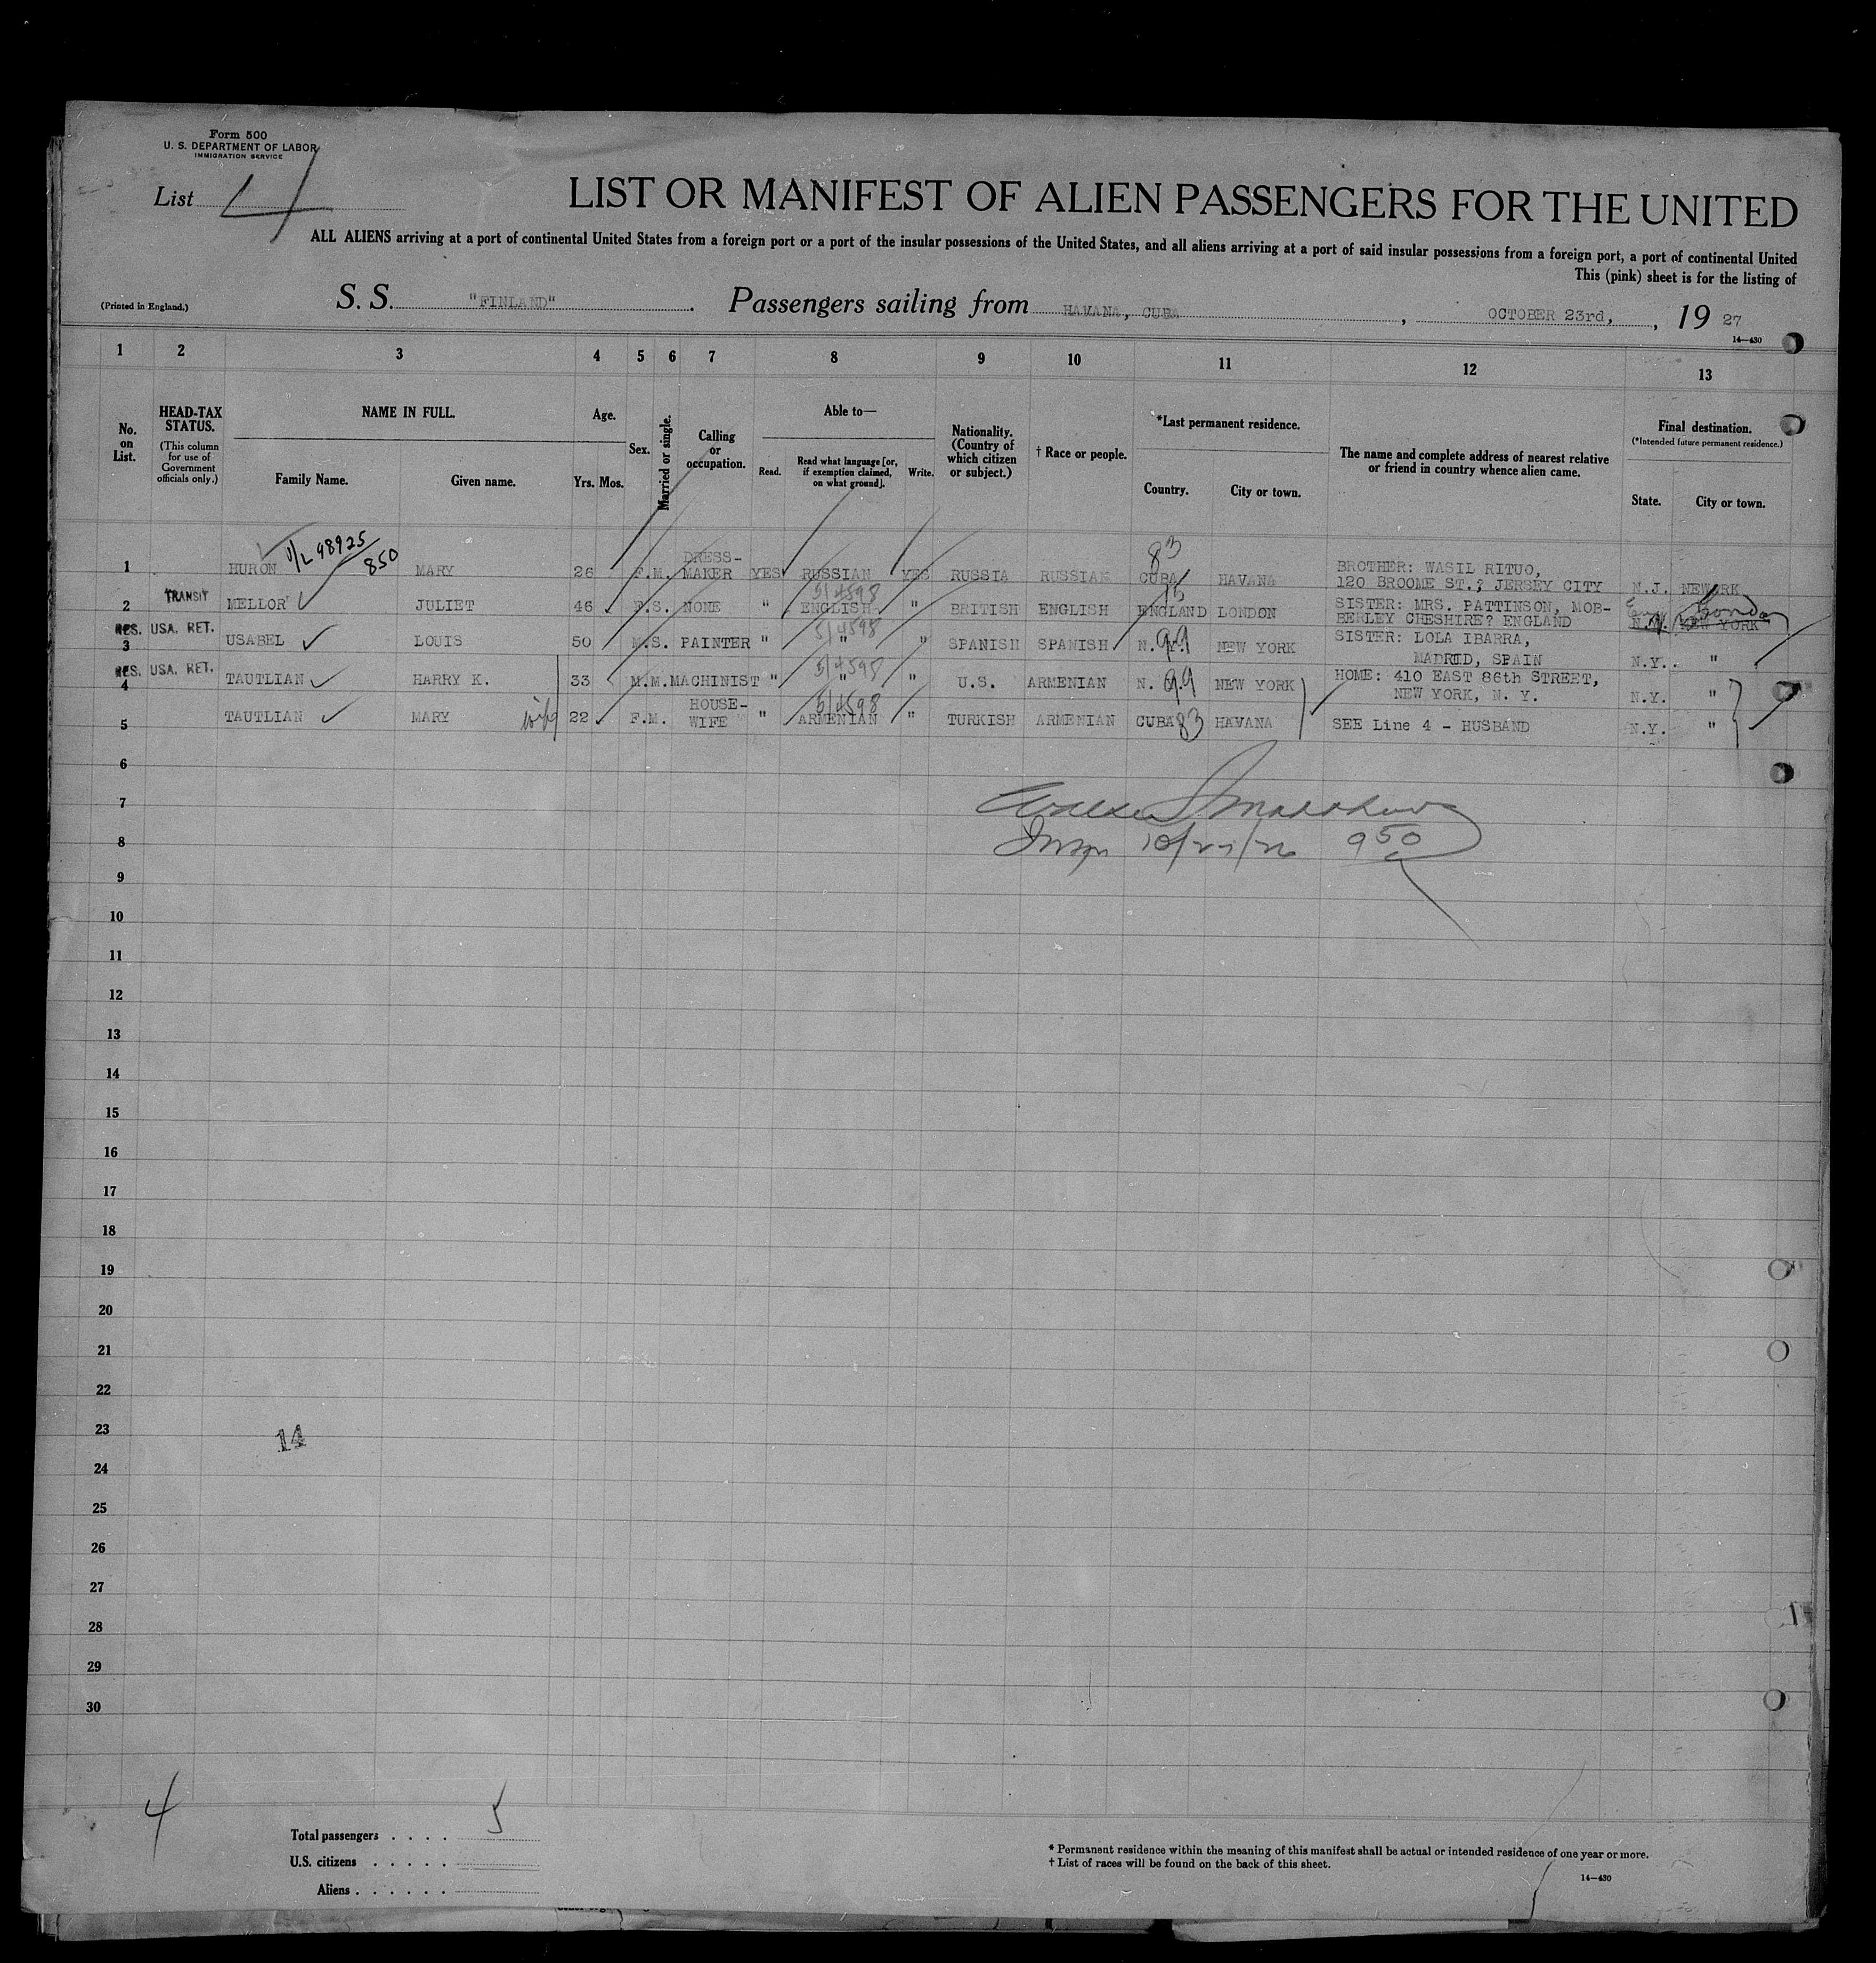 Form 500
U. S. DEPARTMENT OF LABOR
IMMIGRATION SERVICE
List 4
LIST OR MANIFEST OF ALIEN PASSENGERS FOR THE UNITED
ALL ALIENS arriving at a port of continental United States from a foreign port or a port of the insular possessions of the United States, and all aliens arriving at a port of said insular possessions from a foreign port, a port of continental United
This (pink) sheet is for the listing of
(Printed in England.)
S. S. "FINLAND". Passengers sailing from HAVANA, CUBA, OCTOBER 23rd, , 19 27
14—430
1 2 3 4 5 6 7 8 9 10 11 12 13
No. on List.
HEAD-TAX STATUS.
(This column for use of Government officials only.)
NAME IN FULL.
Family Name. Given name.
Age.
Yrs. Mos.
Sex.
Married or single.
Calling or occupation.
Able to—
Read. Read what language [or, if exemption claimed, on what ground]. Write.
Nationality. (Country of which citizen or subject.)
† Race or people.
*Last permanent residence.
Country. City or town.
The name and complete address of nearest relative or friend in country whence alien came.
Final destination.
(*Intended future permanent residence.)
State. City or town.
V/L 98925
850
83
1 HURON MARY 26 F.M. DRESS-MAKER YES RUSSIAN YES RUSSIA RUSSIAN CUBA HAVANA BROTHER: WASIL RITUO, 120 BROOME ST.? JERSEY CITY N.J. NEWARK
5/4598
2 TRANSIT MELLOR JULIET 46 F.S. NONE " ENGLISH " BRITISH ENGLISH ENGLAND LONDON SISTER: MRS. PATTINSON, MOB-BERLEY CHESHIRE? ENGLAND N.Y. NEW YORK
Eng London
5/4598
3 RES. USA. RET. USABEL LOUIS 50 M.S. PAINTER " " " SPANISH SPANISH N.Y. 99 NEW YORK SISTER: LOLA IBARRA, MADRID, SPAIN N.Y. "
5/4598
4 RES. USA. RET. TAUTLIAN HARRY K. 33 M.M. MACHINIST " " " U.S. ARMENIAN N. 99 NEW YORK HOME: 410 EAST 86th STREET, NEW YORK, N. Y. N.Y. "
5/4598
5 TAUTLIAN MARY wife 22 F.M. HOUSE-WIFE " ARMENIAN " TURKISH ARMENIAN CUBA 83 HAVANA SEE Line 4 - HUSBAND N.Y. "
6
7
8
950
9
10
11
12
13
14
15
16
17
18
19
20
21
22
23
14
24
25
26
27
28
29
30
4
Total passengers . . . . 5
U.S. citizens . . . . .
Aliens . . . . . .
* Permanent residence within the meaning of this manifest shall be actual or intended residence of one year or more.
† List of races will be found on the back of this sheet.
14—430